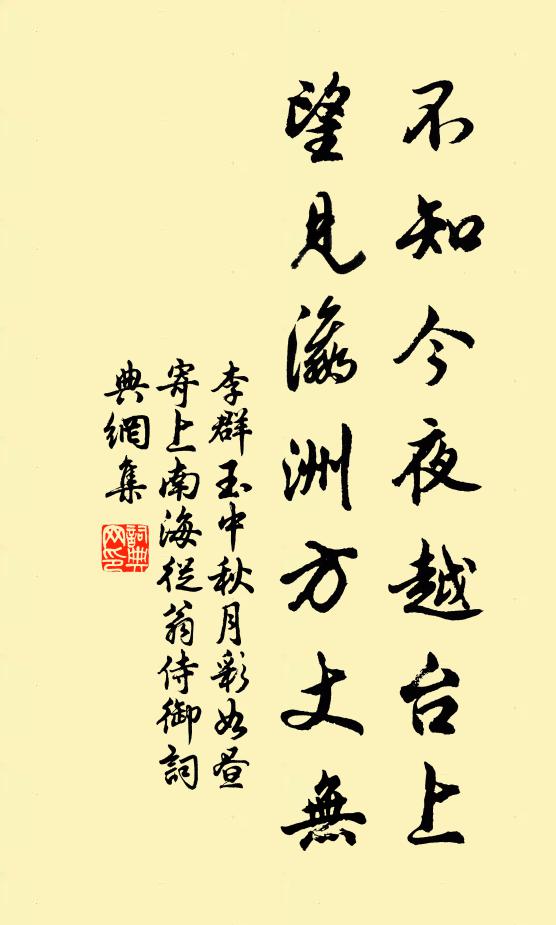 不知今夜越台上
望見瀛洲方丈無
李群玉中秋月彩如晝
寄上南海從翁侍御詞
典網集
詞典網印